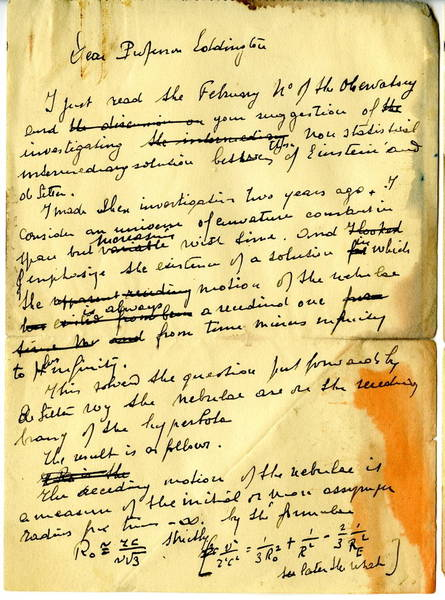 Dear Professor Eddington
I just read the February N° of the Observatory
and the discussion on your suggestion of the
investigating the intermediary non statistical
intermediary solution between those of Einstein and
de Sitter.
I made these investigations two years ago. I
consider an universe of curvature constant in
space but variable increasing with time. And I looked
I emphasize the existence of a solution for in which
the apparent receding motion of the nebulae
is always a receding one from
time and from time minus infinity
to plus infinity.
This solved the question put forwards by
de Sitter why the nebulae are on the receding
branch of the hyperbola
The result is as follows.
This is the
The receding motion of the nebulae is
a measure of the initial or more
radius for time -∞. by the formulae
R₀ ≅ rc/v√3 strictly [v²/r²c² = 1/3R₀² + 1/R² - 2/3 1/R_E²
see later the ]